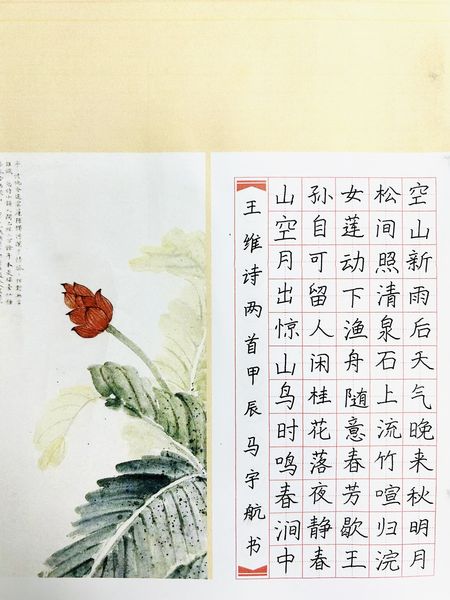 空山新雨后天气晚来秋明月
松间照清泉石上流竹喧归浣
女莲动下渔舟随意春芳歇王
孙自可留人闲桂花落夜静春
山空月出惊山鸟时鸣春涧中
王维诗两首甲辰马宇航书